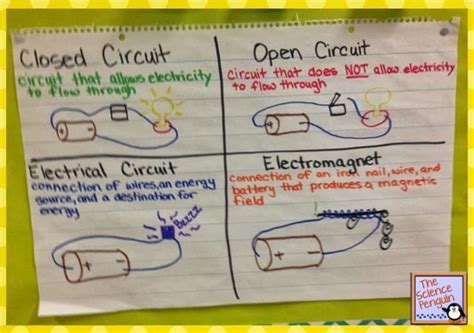 Closed Circuit
circuit that allows electricity
to flow through
Open Circuit
circuit that does NOT allow electricity
to flow through
Electrical Circuit
connection of wires, an energy
source, and a destination for
energy
Bzzzz
- +
Electromagnet
connection of an iron nail, wire, and
battery that produces a magnetic
field
+ -
The
Science
Penguin